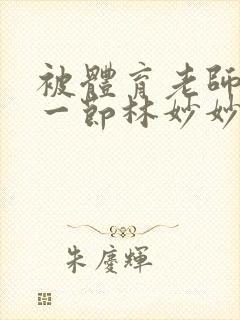 被體育老師
一節林妙妙
朱慶輝